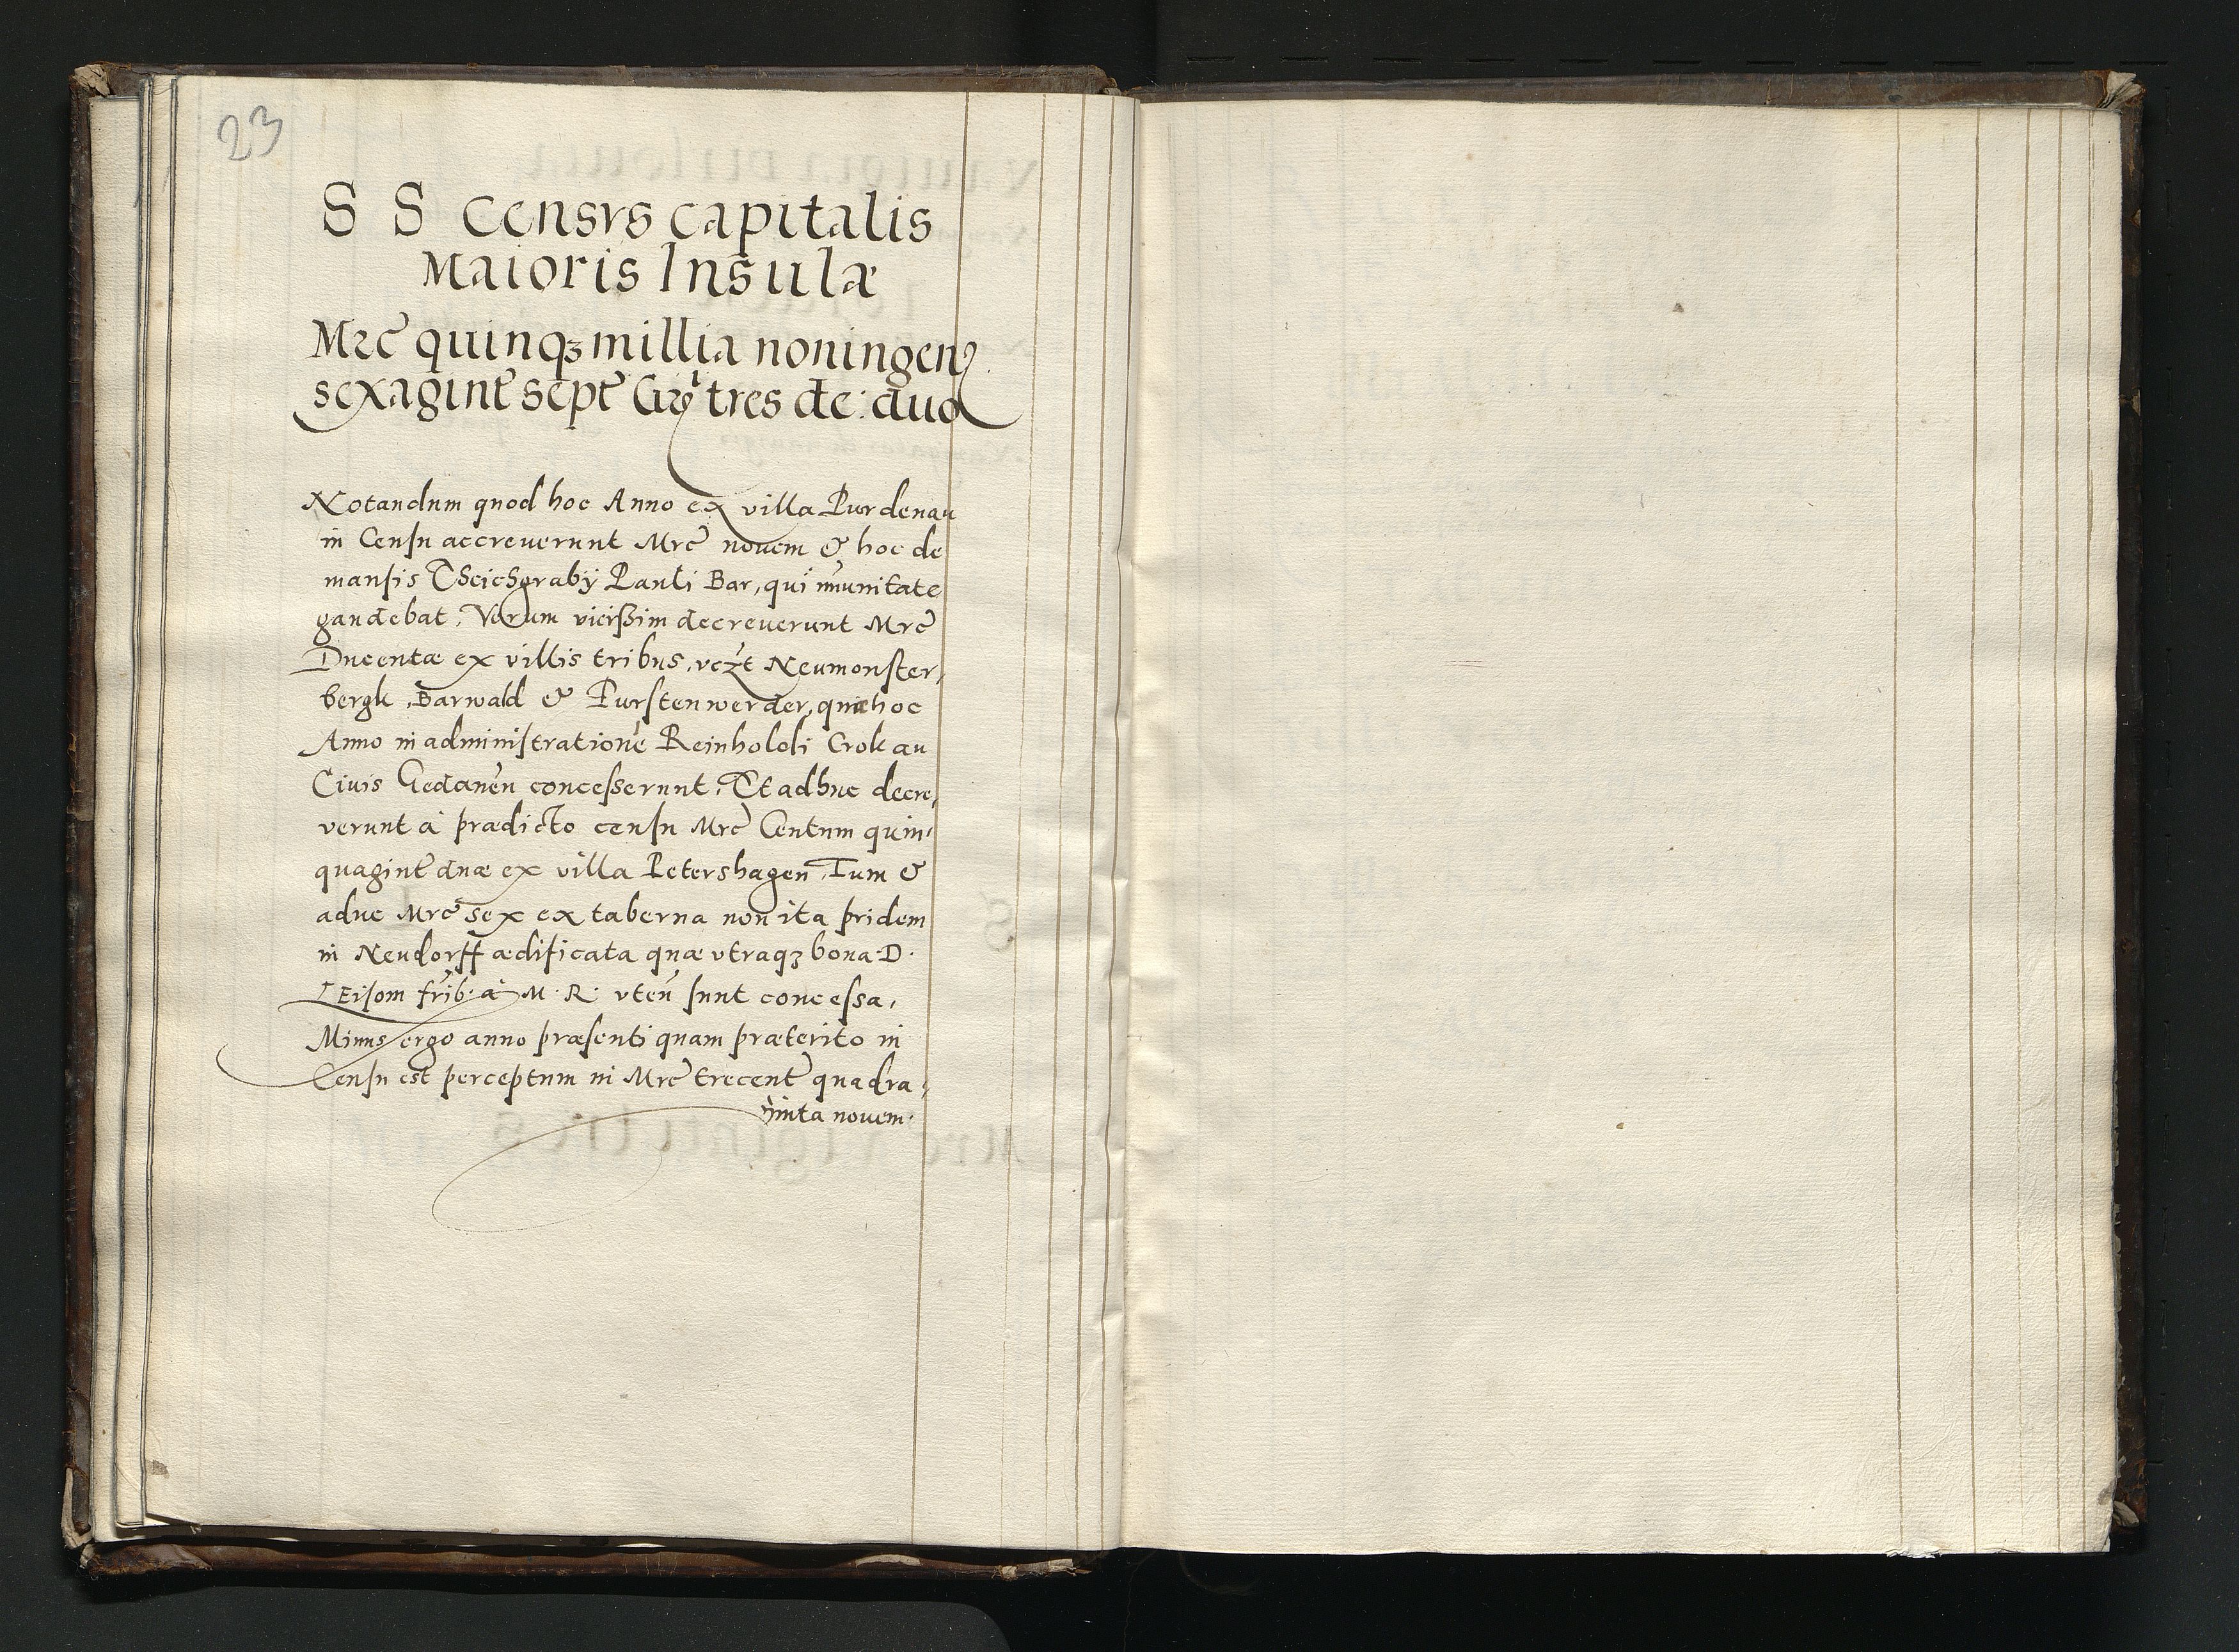 23
S S Censvs capitalis
Maioris Insulæ
Mrc̃ quinqꝫ millia noningen
sexagint̃ sept̃ tres de: duo
Notandum quod hoc Anno ex villa Purdenau
in Censu accreuerunt Mrc̃ nouem & hoc de
mansis Pauli Bar, qui im̃unitate
gaudebat. Verum viciſsim decreuerunt Mrc̃
Ducentæ ex villis tribus, vcz̃t Neumonster,
bergk, Barwald & Furstenwerder, quæ hoc
Anno in administratione Reinholdi Crokau
Ciuis Gedaneñ concesserunt, Et adhuc decre,
verunt à prædicto censu Mrc̃ Centum quin,
quagint̃ duæ ex villa Petershagen, Tum &
aduc Mrc̃ sex ex taberna non ita pridem
in Neudorff ædificata quæ vtraqꝫ bona D.
Loisom frib: à M. R. vteñ sunt concessa,
Minus ergo anno præsenti quam præterito in
Censu est perceptum in Mrc̃ trecent̃ quadra,
ginta nouem.